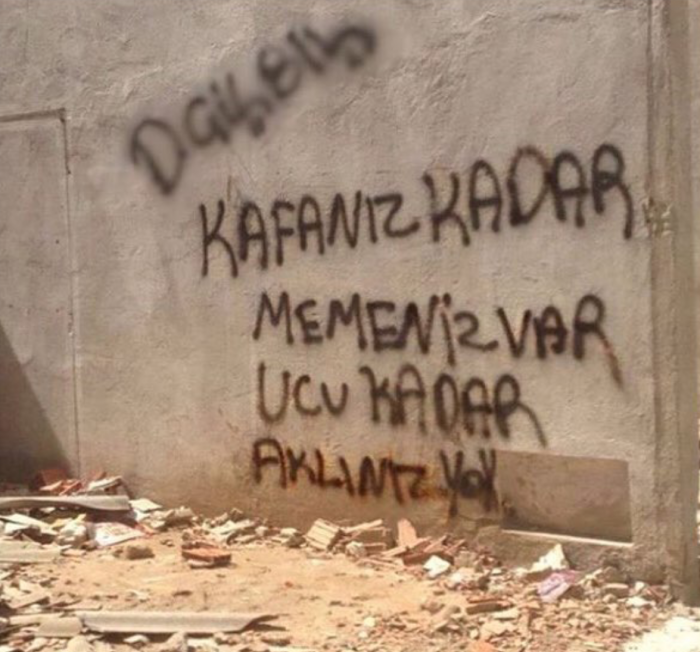 KAFANIZ KADAR
MEMENİZ VAR
UCU KADAR
AKLINIZ YOK